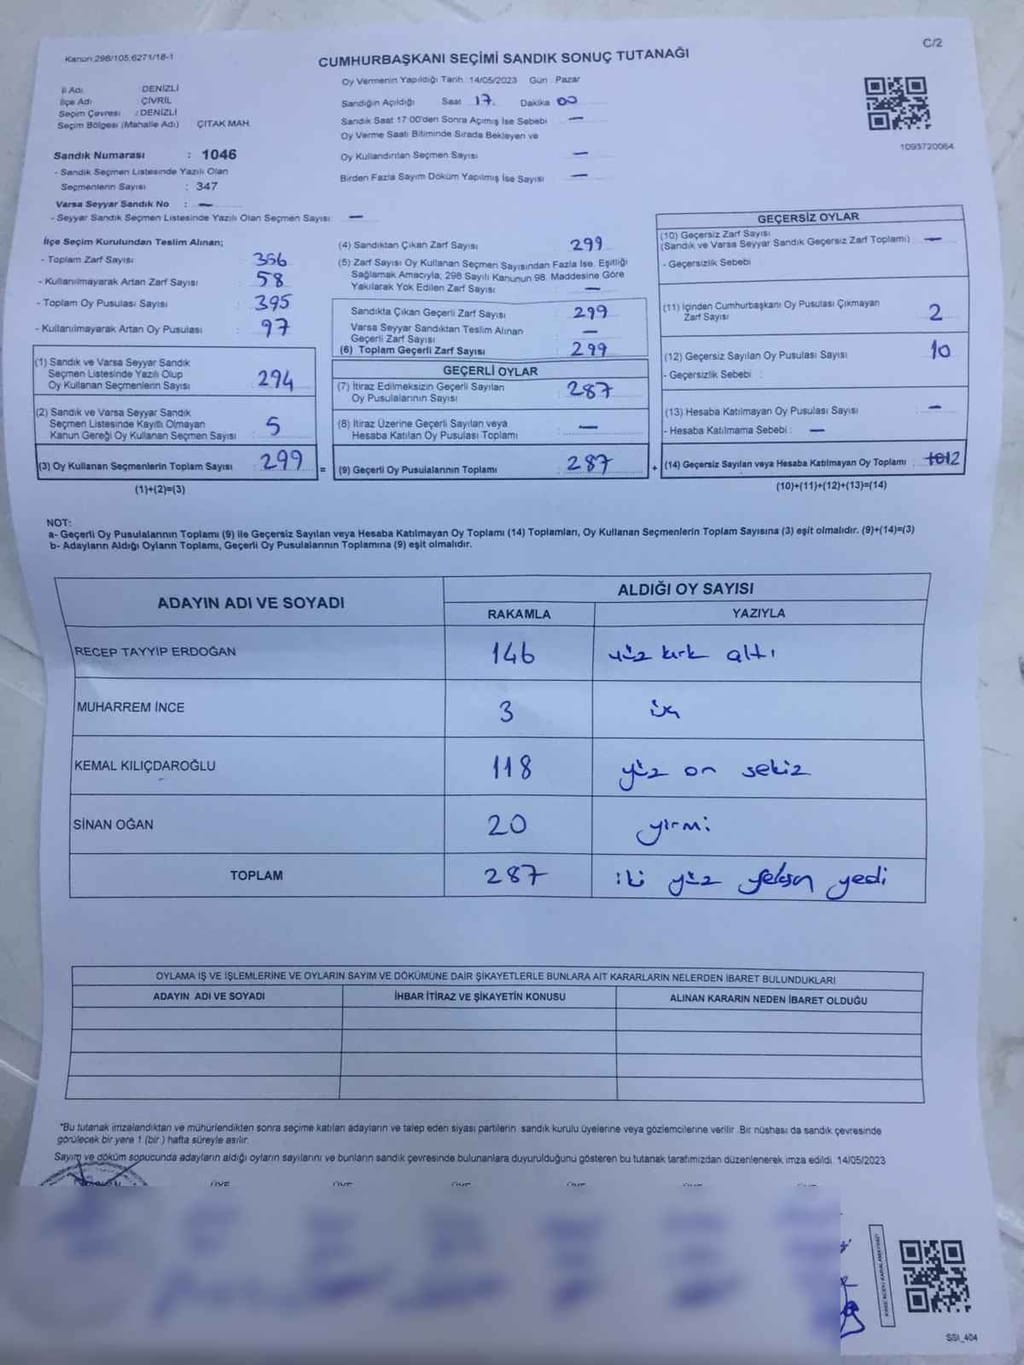 Kanun:298/105,6271/18-1
CUMHURBAŞKANI SEÇİMİ SANDIK SONUÇ TUTANAĞI
C/2
İl Adı : DENİZLİ
İlçe Adı : ÇİVRİL
Seçim Çevresi : DENİZLİ
Seçim Bölgesi (Mahalle Adı) ÇITAK MAH.
Sandık Numarası : 1046
- Sandık Seçmen Listesinde Yazılı Olan
Seçmenlerin Sayısı : 347
Varsa Seyyar Sandık No : —
- Seyyar Sandık Seçmen Listesinde Yazılı Olan Seçmen Sayısı : —
Oy Vermenin Yapıldığı Tarih :14/05/2023 Gün : Pazar
Sandığın Açıldığı Saat 17 Dakika 00
Sandık Saat 17:00'den Sonra Açılmış İse Sebebi —
Oy Verme Saati Bitiminde Sırada Bekleyen ve
Oy Kullandırılan Seçmen Sayısı —
Birden Fazla Sayım Döküm Yapılmış İse Sayısı —
1093720064
İlçe Seçim Kurulundan Teslim Alınan;
- Toplam Zarf Sayısı : 356
- Kullanılmayarak Artan Zarf Sayısı : 58
- Toplam Oy Pusulası Sayısı : 395
- Kullanılmayarak Artan Oy Pusulası : 97
(1) Sandık ve Varsa Seyyar Sandık
Seçmen Listesinde Yazılı Olup
Oy Kullanan Seçmenlerin Sayısı : 294
(2) Sandık ve Varsa Seyyar Sandık
Seçmen Listesinde Kayıtlı Olmayan
Kanun Gereği Oy Kullanan Seçmen Sayısı : 5
(3) Oy Kullanan Seçmenlerin Toplam Sayısı : 299
(1)+(2)=(3)
(4) Sandıktan Çıkan Zarf Sayısı 299
(5) Zarf Sayısı Oy Kullanan Seçmen Sayısından Fazla İse, Eşitliği
Sağlamak Amacıyla, 298 Sayılı Kanunun 98. Maddesine Göre
Yakılarak Yok Edilen Zarf Sayısı —
Sandıkta Çıkan Geçerli Zarf Sayısı 299
Varsa Seyyar Sandıktan Teslim Alınan
Geçerli Zarf Sayısı —
(6) Toplam Geçerli Zarf Sayısı 299
GEÇERLİ OYLAR
(7) İtiraz Edilmeksizin Geçerli Sayılan
Oy Pusulalarının Sayısı 287
(8) İtiraz Üzerine Geçerli Sayılan veya
Hesaba Katılan Oy Pusulası Toplamı —
= (9) Geçerli Oy Pusulalarının Toplamı 287
GEÇERSİZ OYLAR
(10) Geçersiz Zarf Sayısı
(Sandık ve Varsa Seyyar Sandık Geçersiz Zarf Toplamı) —
- Geçersizlik Sebebi :
(11) İçinden Cumhurbaşkanı Oy Pusulası Çıkmayan
Zarf Sayısı 2
(12) Geçersiz Sayılan Oy Pusulası Sayısı 10
- Geçersizlik Sebebi :
(13) Hesaba Katılmayan Oy Pusulası Sayısı —
- Hesaba Katılmama Sebebi : —
+ (14) Geçersiz Sayılan veya Hesaba Katılmayan Oy Toplamı 12
(10)+(11)+(12)+(13)=(14)
NOT:
a- Geçerli Oy Pusulalarının Toplamı (9) ile Geçersiz Sayılan veya Hesaba Katılmayan Oy Toplamı (14) Toplamları, Oy Kullanan Seçmenlerin Toplam Sayısına (3) eşit olmalıdır. (9)+(14)=(3)
b- Adayların Aldığı Oyların Toplamı, Geçerli Oy Pusulalarının Toplamına (9) eşit olmalıdır.
ADAYIN ADI VE SOYADI
ALDIĞI OY SAYISI
RAKAMLA YAZIYLA
RECEP TAYYİP ERDOĞAN 146 yüz kırk altı
MUHARREM İNCE 3 üç
KEMAL KILIÇDAROĞLU 118 yüz on sekiz
SİNAN OĞAN 20 yirmi
TOPLAM 287 iki yüz seksen yedi
OYLAMA İŞ VE İŞLEMLERİNE VE OYLARIN SAYIM VE DÖKÜMÜNE DAİR ŞİKAYETLERLE BUNLARA AİT KARARLARIN NELERDEN İBARET BULUNDUKLARI
ADAYIN ADI VE SOYADI İHBAR İTİRAZ VE ŞİKAYETİN KONUSU ALINAN KARARIN NEDEN İBARET OLDUĞU
*Bu tutanak imzalandıktan ve mühürlendikten sonra seçime katılan adayların ve talep eden siyasi partilerin, sandık kurulu üyelerine veya gözlemcilerine verilir. Bir nüshası da sandık çevresinde
görülecek bir yere 1 (bir ) hafta süreyle asılır.
Sayım ve döküm sonucunda adayların aldığı oyların sayılarını ve bunların sandık çevresinde bulunanlara duyurulduğunu gösteren bu tutanak tarafımızdan düzenlenerek imza edildi. 14/05/2023
SSI_404